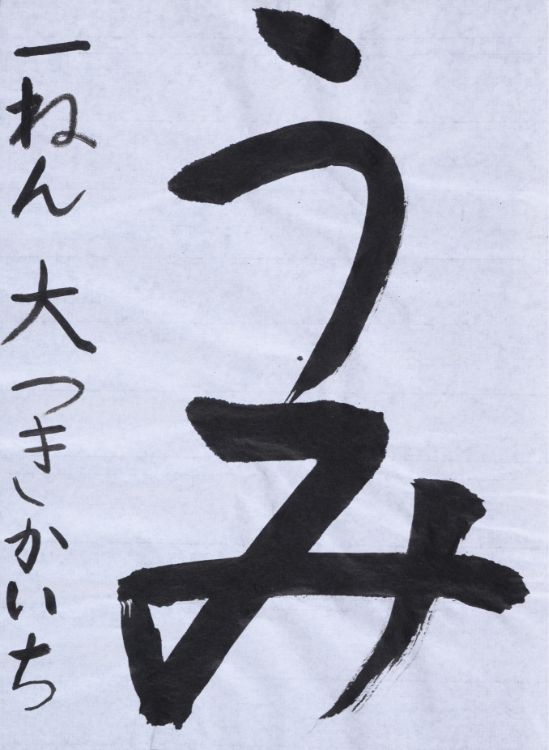 うみ
一ねん 大つきかいち